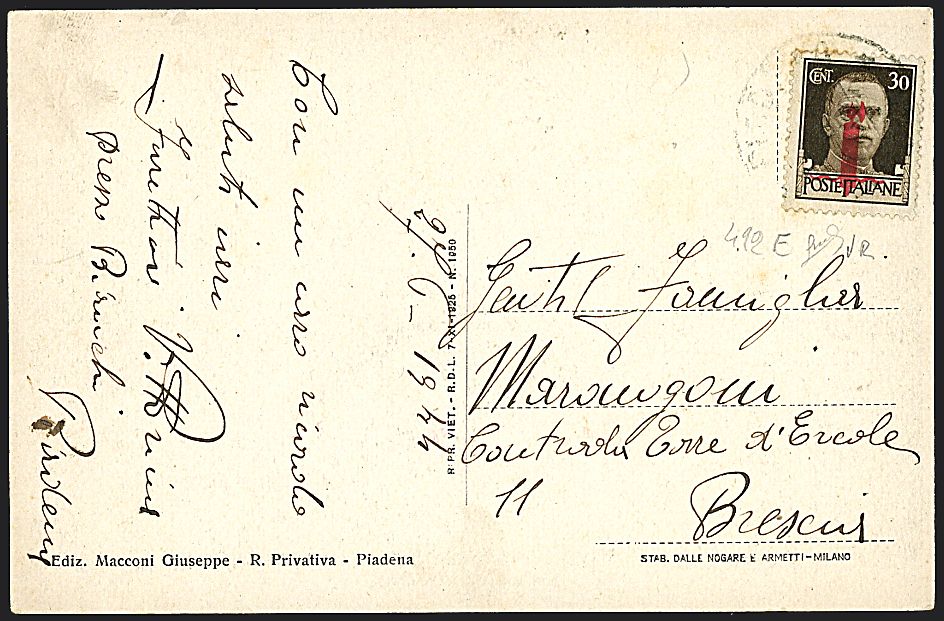 Con un caro ricordo
saluti cari
presso Bianchi
Piadena
27.6-1944
RIPR. VIET. - R.D.L. 7-XI-1925 - N. 1950
CENT. 30
POSTE ITALIANE
492 E
Gent. Famiglia
Marangoni
Contrada Torre d'Ercole
11
Brescia
Ediz. Macconi Giuseppe - R. Privativa - Piadena
STAB. DALLE NOGARE E ARMETTI - MILANO